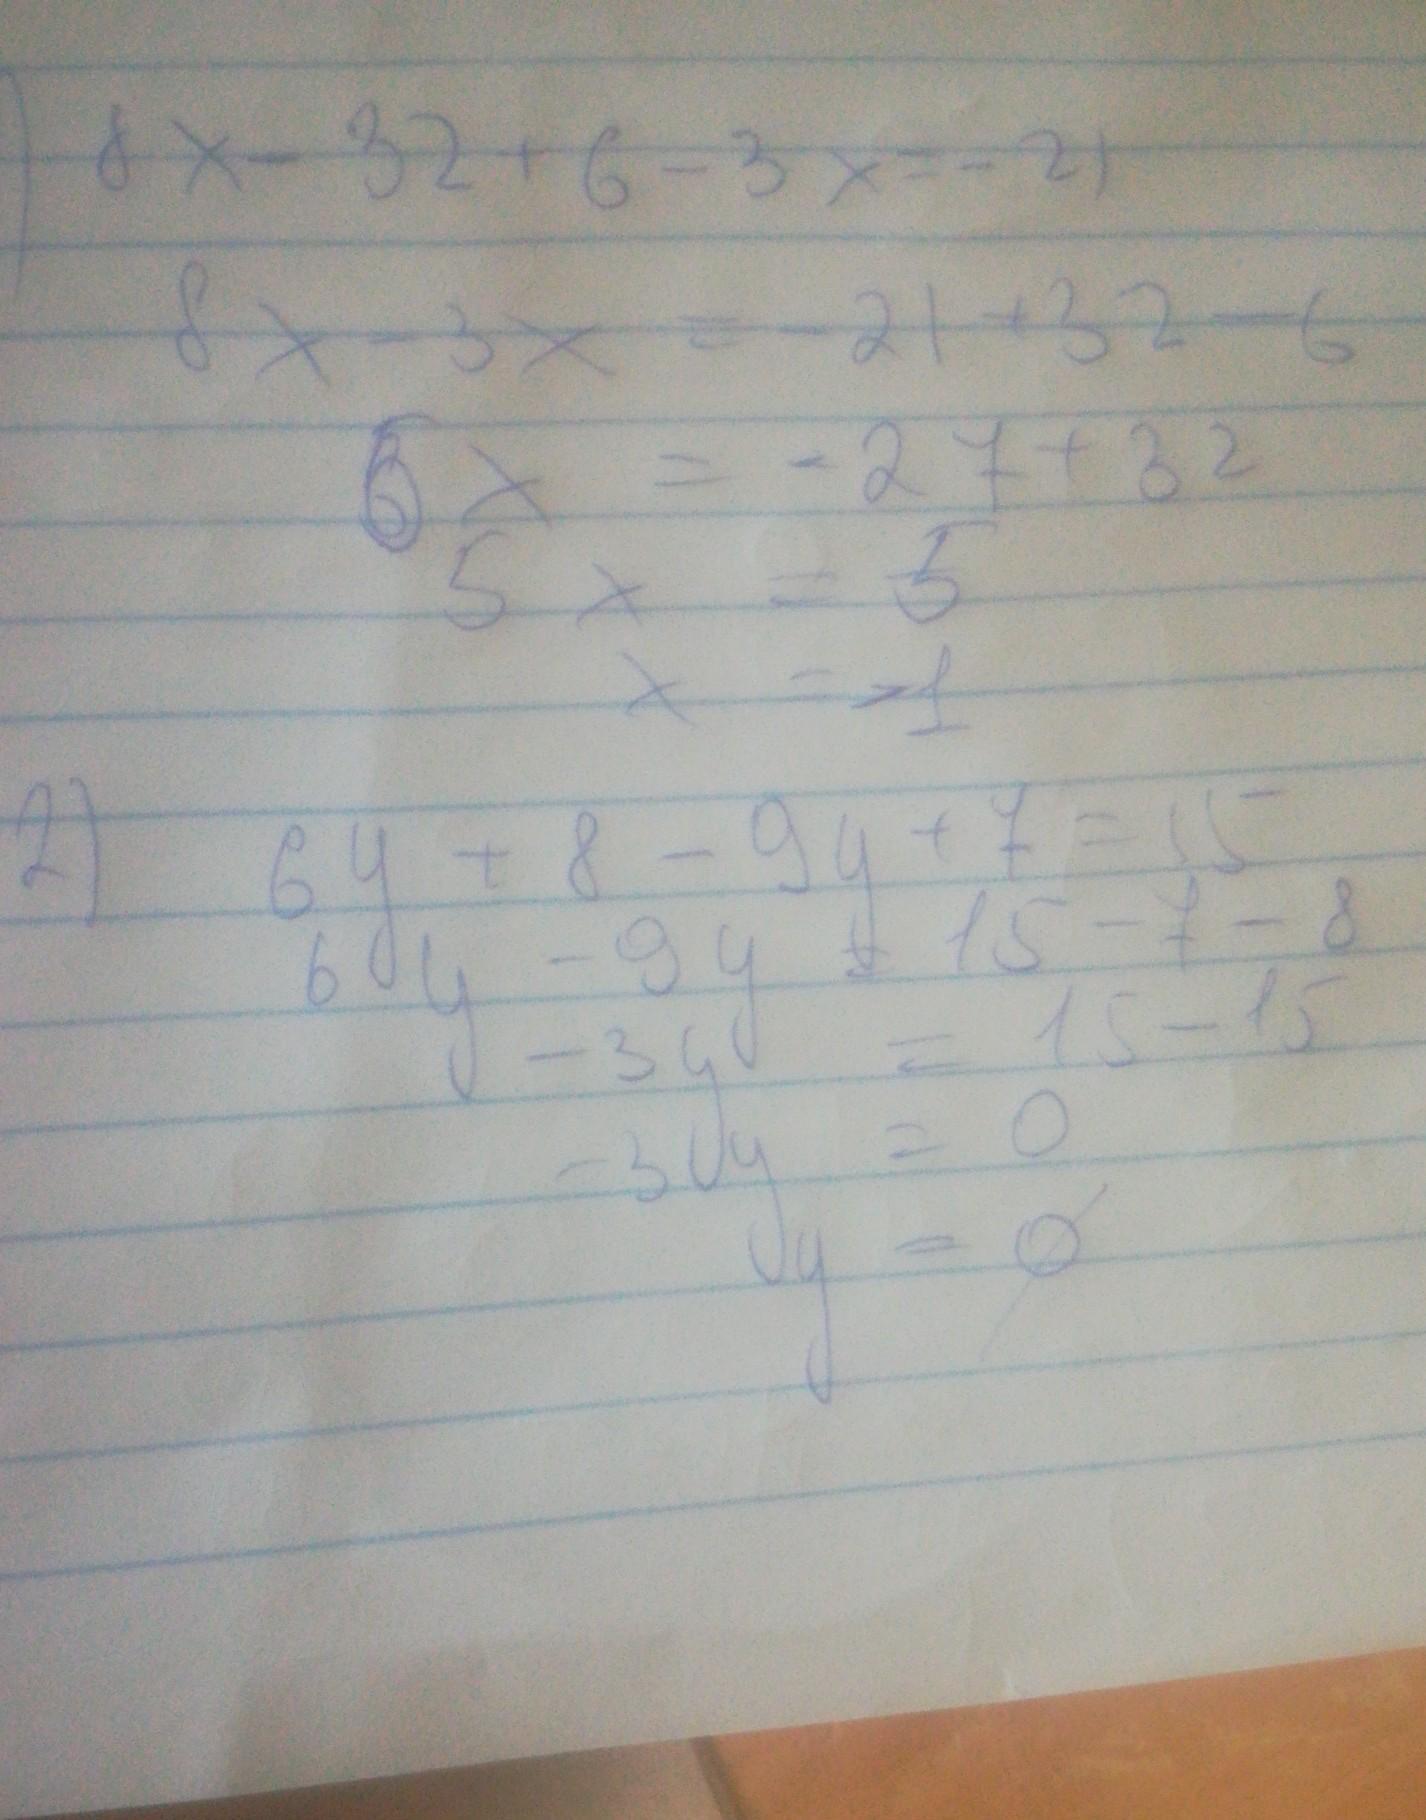 ) 8x - 32 + 6 - 3x = - 21
8x - 3x = - 21 + 32 - 6
5x = - 27 + 32
5x = 5
x = -1
2) 6y + 8 - 9y + 7 = 15
6y - 9y = 15 - 7 - 8
- 3y = 15 - 15
- 3y = 0
y = 0